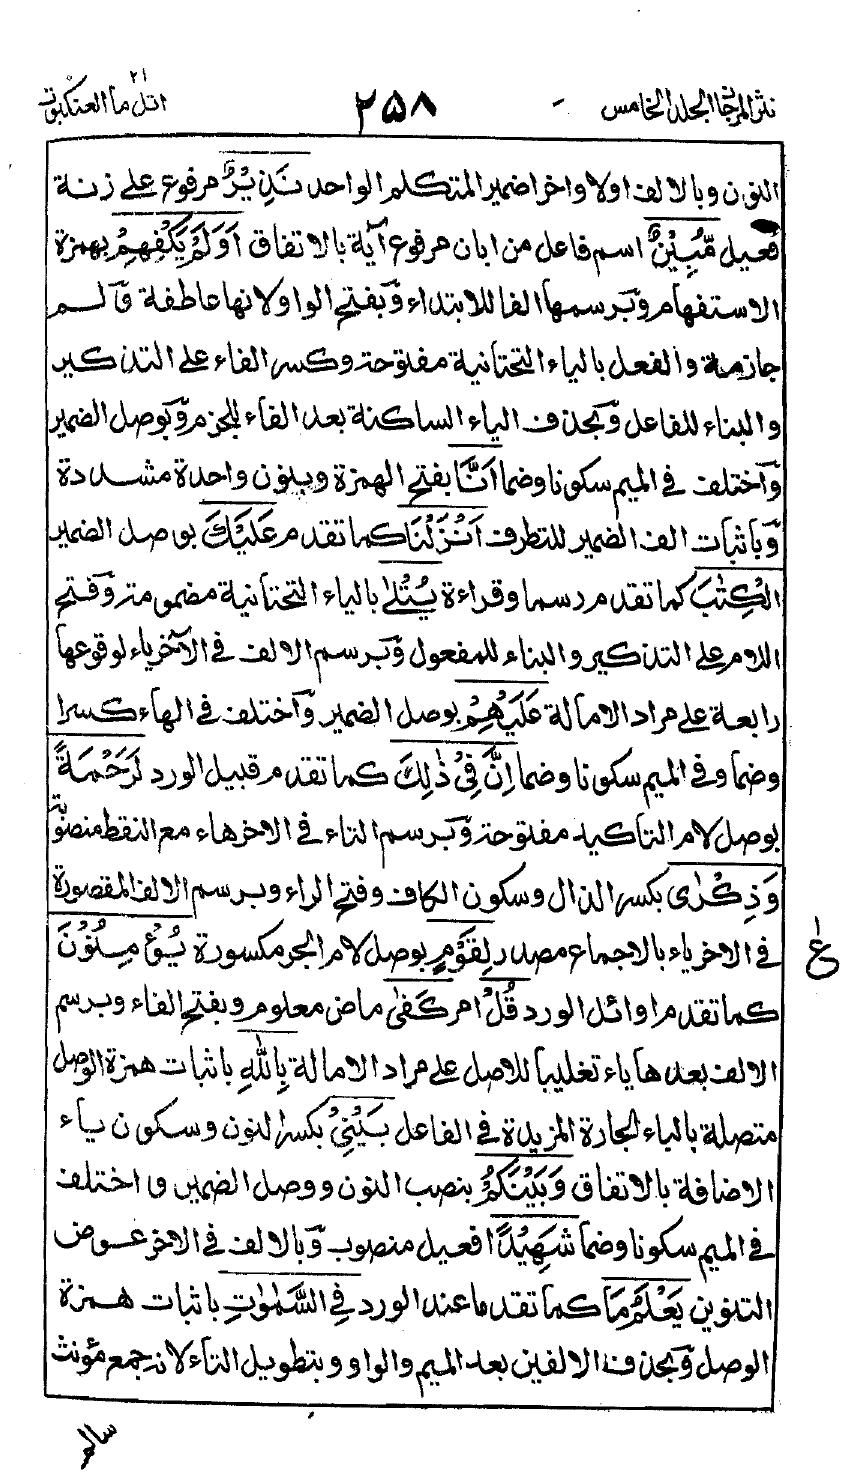 نثر المرجان المجلد الخامس
۲۵۸
اتل ما العنكبوت
۲۱
النون وبالالف اولا واخرا ضمير المتكلم الواحد نَذِيْرٌ مرفوع على زنة
فعيل مُّبِيْنٌ اسم فاعل من ابان مرفوع آية بالاتفاق اَوَلَمْ يَكْفِهِمْ بهمزة
الاستفهام وبرسمها الفا للابتداء وبفتح الواو لانها عاطفة ولم
جازمة والفعل بالياء التحتانية مفتوحة وكسر الفاء على التذكير
والبناء للفاعل وبحذف الياء الساكنة بعد الفاء للجزم وبوصل الضمير
واختلف في الميم سكونا وضما اَنَّا بفتح الهمزة وبنون واحدة مشددة
وباثبات الف الضمير للتطرف اَنْزَلْنَا كما تقدم عَلَيْكَ بوصل الضمير
الْكِتٰبَ كما تقدم رسما وقراءة يُتْلٰى بالياء التحتانية مضمومة وفتح
اللام على التذكير والبناء للمفعول وبرسم الالف في الآخر ياء لوقوعها
رابعة على مراد الامالة عَلَيْهِمْ بوصل الضمير واختلف في الهاء كسرا
وضما وفي الميم سكونا وضما اِنَّ فِيْ ذٰلِكَ كما تقدم قبيل الورد لَرَحْمَةً
بوصل لام التاكيد مفتوحة وبرسم التاء في الاخر هاء مع النقط منصوبة
وَذِكْرٰى بكسر الذال وسكون الكاف وفتح الراء وبرسم الالف المقصورة
في الاخر ياء بالاجماع مصدر لِقَوْمٍ بوصل لام الجر مكسورة يُؤْمِنُوْنَ
ع
كما تقدم اوائل الورد قُلْ امر كَفٰى ماض معلوم وبفتح الفاء وبرسم
الالف بعدها ياء تغليبا للاصل على مراد الامالة بِاللّٰهِ باثبات همزة الوصل
متصلة بالباء الجارة المزيدة في الفاعل بَيْنِيْ بكسر النون وسكون ياء
الاضافة بالاتفاق وَبَيْنَكُمْ بنصب النون ووصل الضمير واختلف
في الميم سكونا وضما شَهِيْدًا فعيل منصوب وبالالف في الاخر عوض
التنوين يَعْلَمُ مَا كما تقدما عند الورد فِي السَّمٰوٰتِ باثبات همزة
الوصل وبحذف الالفين بعد الميم والواو وبتطويل التاء لانه جمع مؤنث
سالم